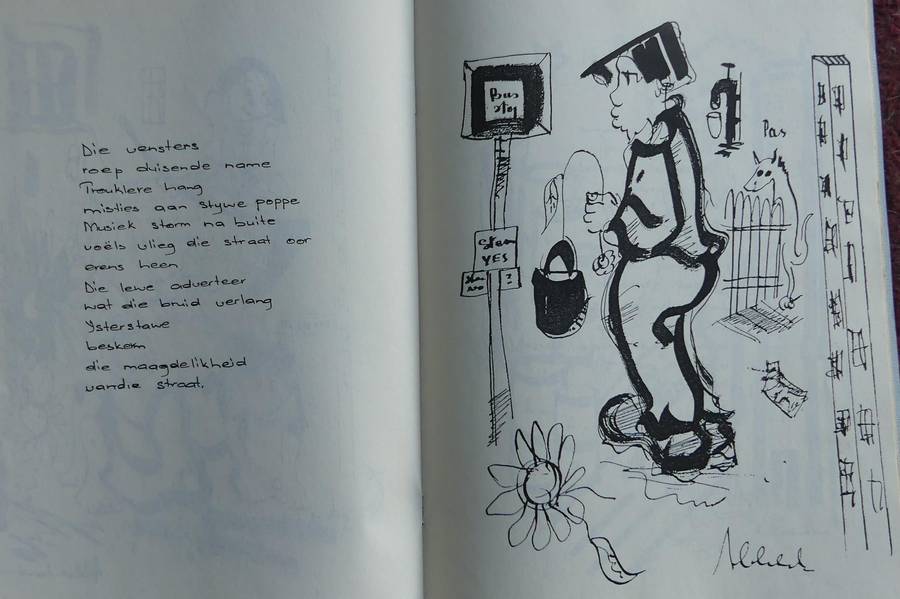 Die vensters
roep duisende name
Trouklere hang
misties aan stywe poppe
Musiek storm na buite
voëls vlieg die straat oor
erens heen
Die lewe adverteer
wat die bruid verlang
Ysterstawe
beskerm
die maagdelikheid
vandie straat.
Bus
stop
YES
?
Pas